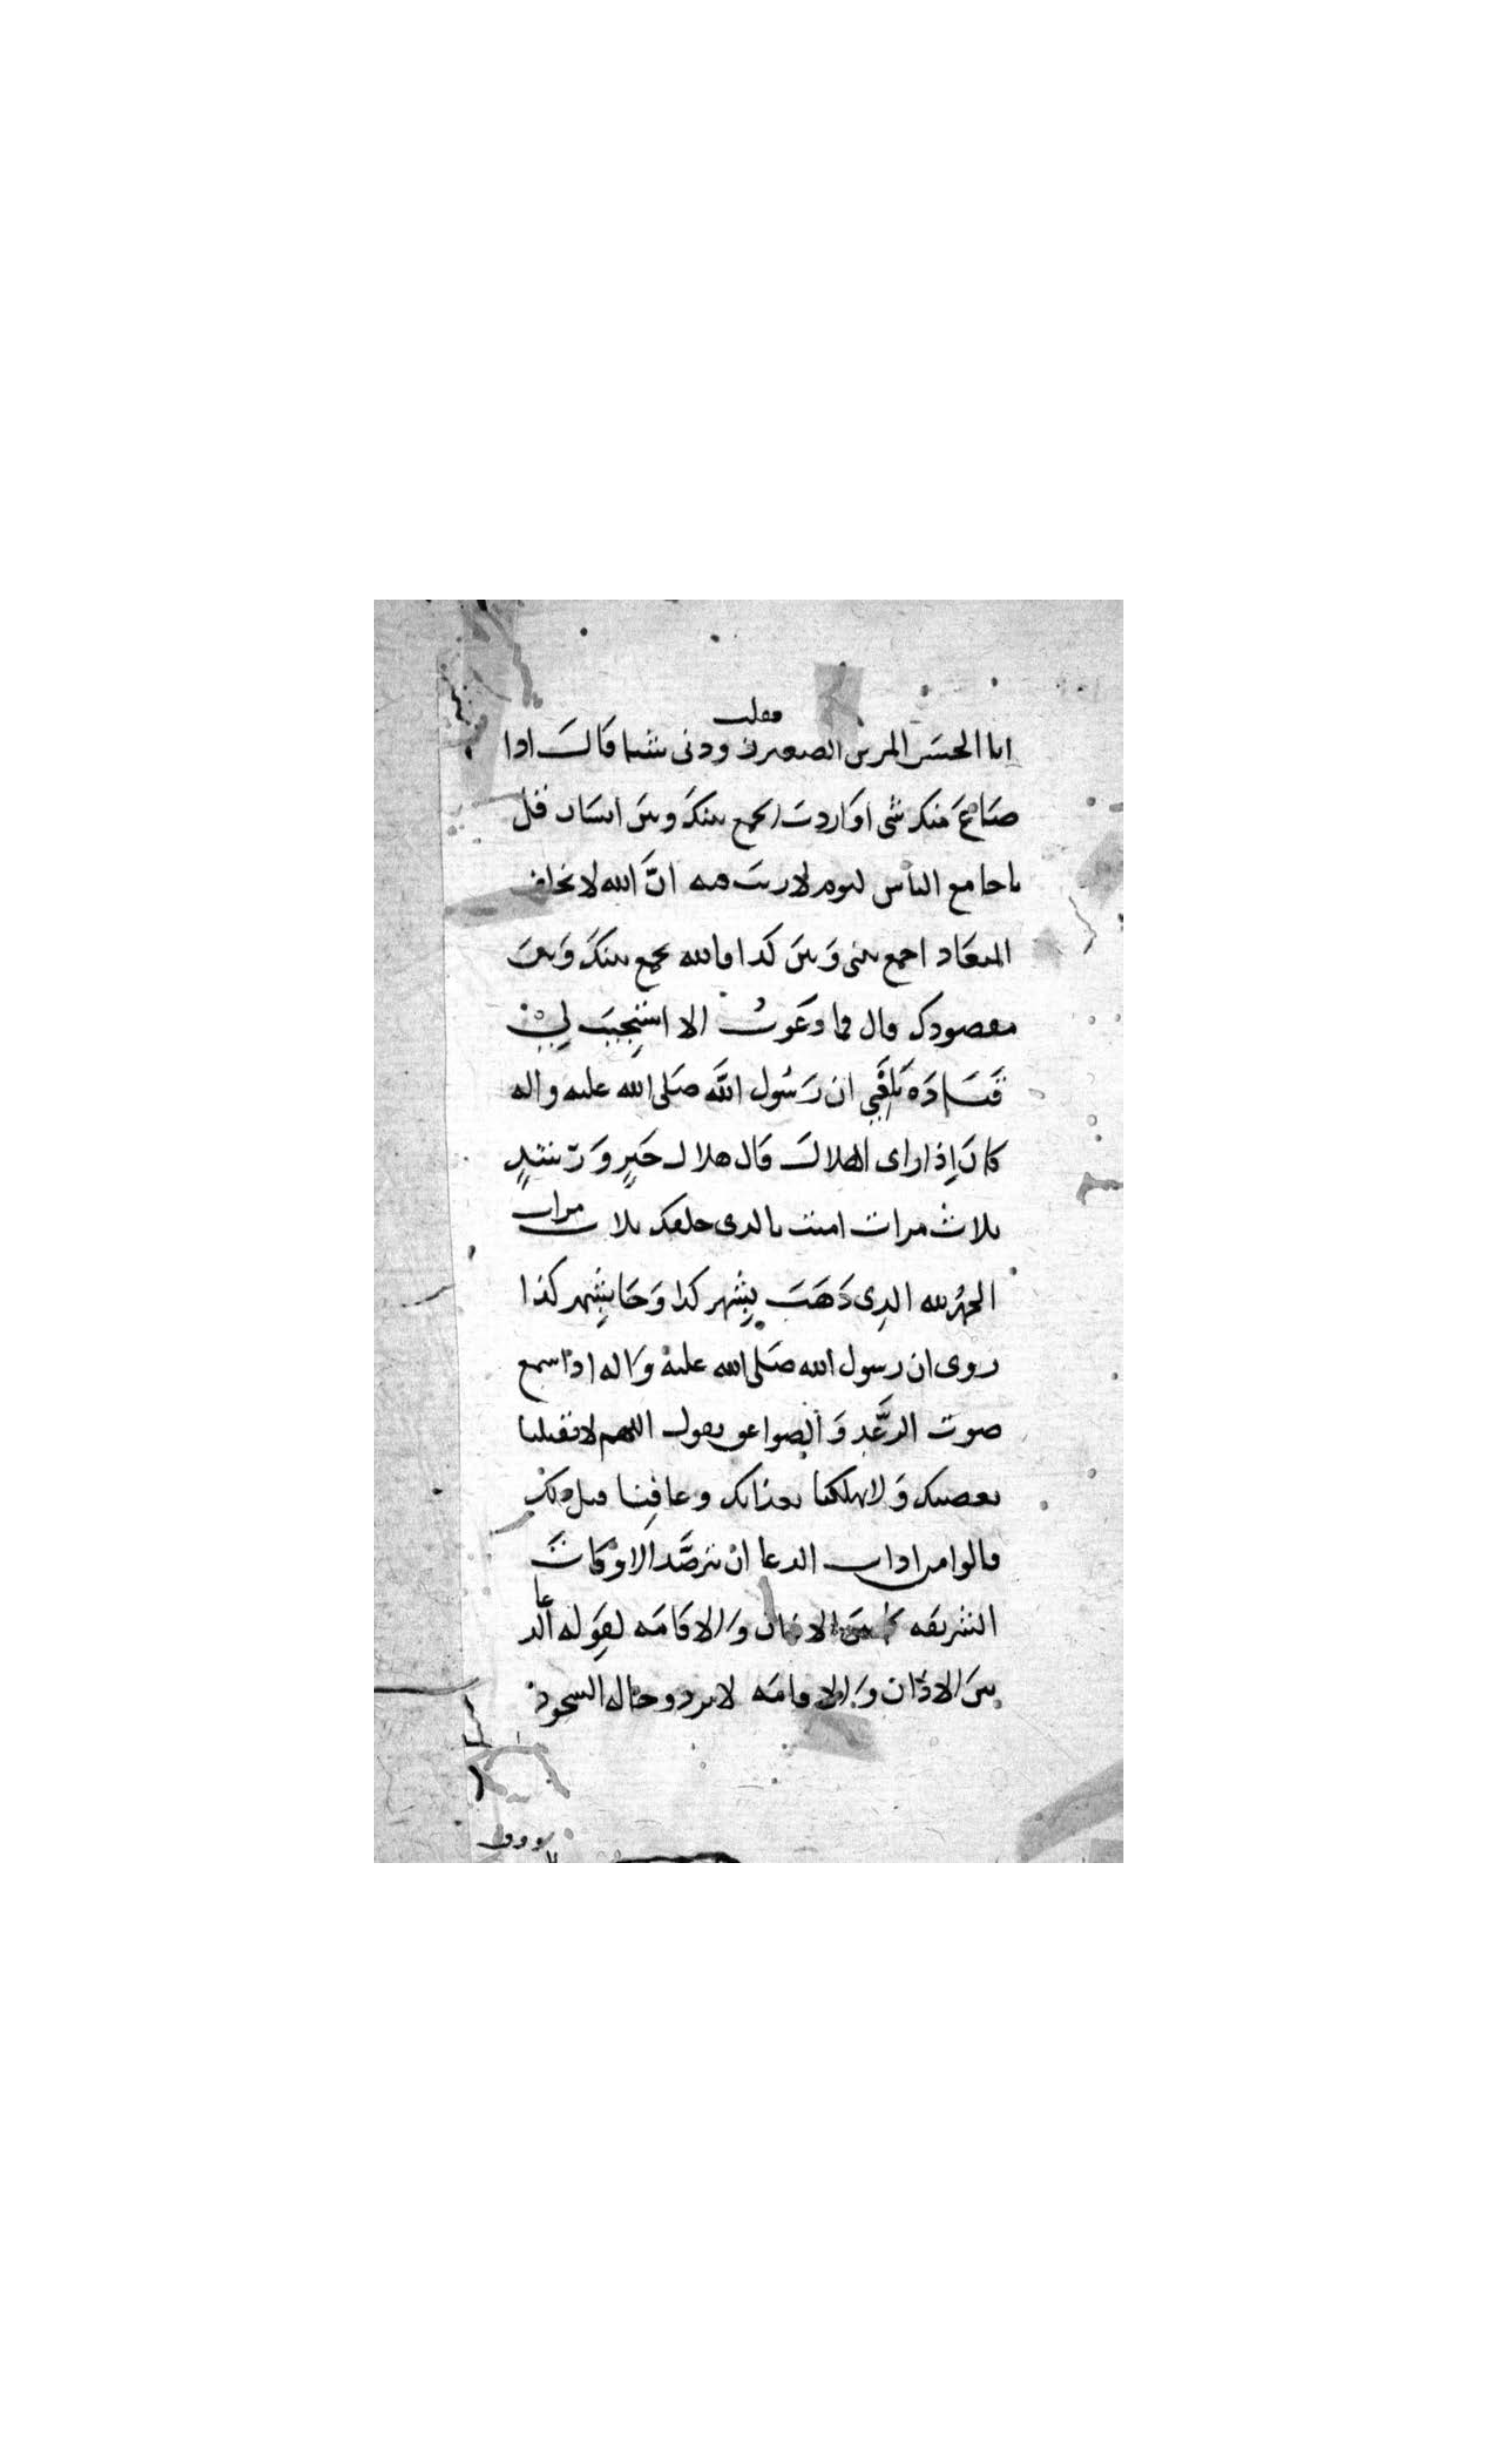 فقلت
ابا الحسن المزين الصغير زودني شيئا قال اذا
ضاع منك شي او اردت يجمع بينك وبين انسان فقل
يا جامع الناس ليوم لا ريب فيه انَّ الله لا يخلف
الميعاد اجمع بيني وَبين كذا فالله يجمع بينكَ وَبين
مقصودك قال فما دعَوتُ الا استُجِيبَ لِي
قَتَادَه بَلغَنِي ان رَسُول اللَّه صَلى الله عليه واله
كانَ إذا راى الهلال قال هلال خَيرٍ وَرشدٍ
ثلاث مرات امنت بالذي خلقك ثلاث مرات
الحمدُ لله الذِي ذَهَبَ بِشَهر كذا وَجَا بِشَهر كذا
روى ان رسول الله صَلى الله عليه وَاله اذا سمع
صوت الرَّعْدِ وَ الصواعق يقول اللهم لا تقتلنا
بغضبك وَ لا تهلكنا بعذابك وعافِنا قبل ذلك
قالوا من اداب الدعا انْ يترصَّد الاوْقات
الشريفه كما بينَ الاذان وَالاقامَه لقَوله الدعا
بين الاذان وَ الاقامَه لا يرد وحاله السجود